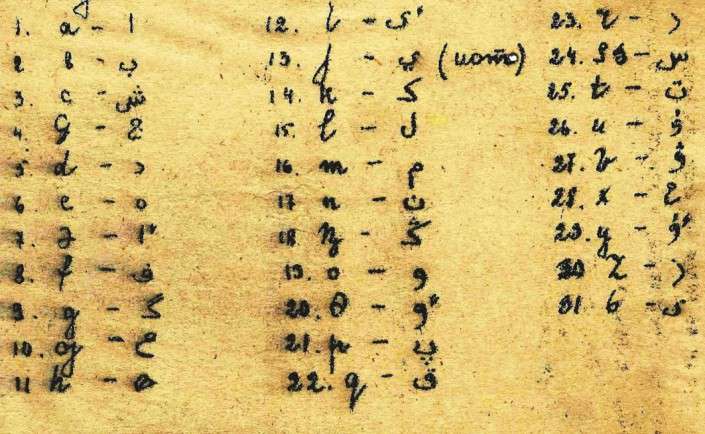 1. a - ا
2 в - ب
3. c - ش
4. ç - چ
5 d - د
6 e - ه
7. ə - اٴ
8. f - ف
9. g - ک
10. ƣ - ع
11 h - ه
12. i - ىٴ
13. j - ي (иото)
14. k - ک
15. l - ل
16. m - م
17 n - ن
18 ꞑ - ڭ
19. o - و
20. ɵ - وٴ
21. p - پ
22. q - ق
23. r - ر
24. s - س
25. t - ت
26. u - ۇ
27. v - ۋ
28. x - خ
29. y - ۇٴ
30 z - ز
31 ь - ى